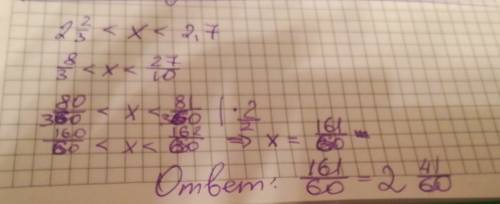 2 2/3 < x < 2,7
8/3 < x < 27/10
80/30 < x < 81/30 | · 2/2
160/60 < x < 162/60 ⇒ x = 161/60 -
Ответ: 161/60 = 2 41/60